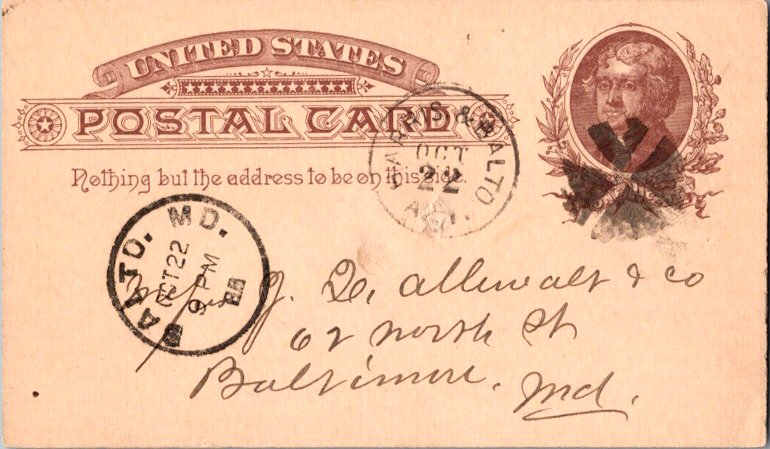 UNITED STATES
POSTAL CARD
Nothing but the address to be on this side.
HARRIS & BALTO
OCT
22
BALTO. MD.
OCT 22
9 PM
J. allewalt & co
62 north St
Baltimore, Md.